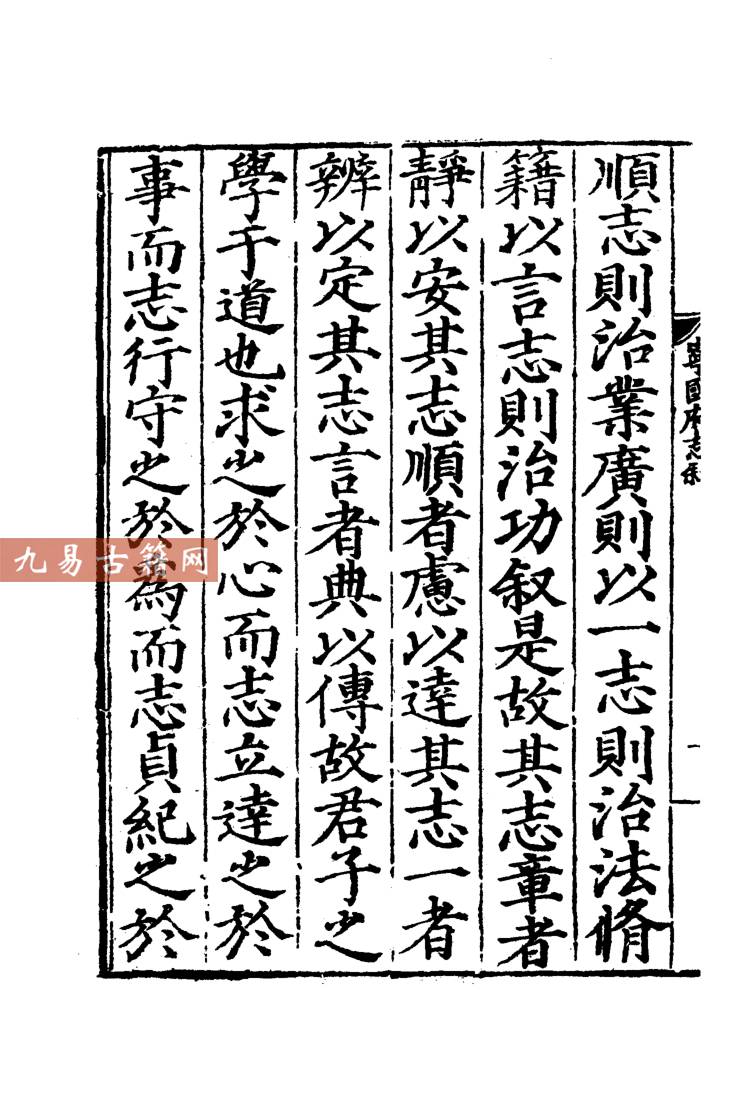 順志則治業廣則以一志則治法脩
籍以言志則治功叙是故其志章者
靜以安其志順者慮以達其志一者
辨以定其志言者典以傳故君子之
學于道也求之於心而志立達之於
事而志行守之於爲而志貞紀之於
寧國府志
一
九易古籍网